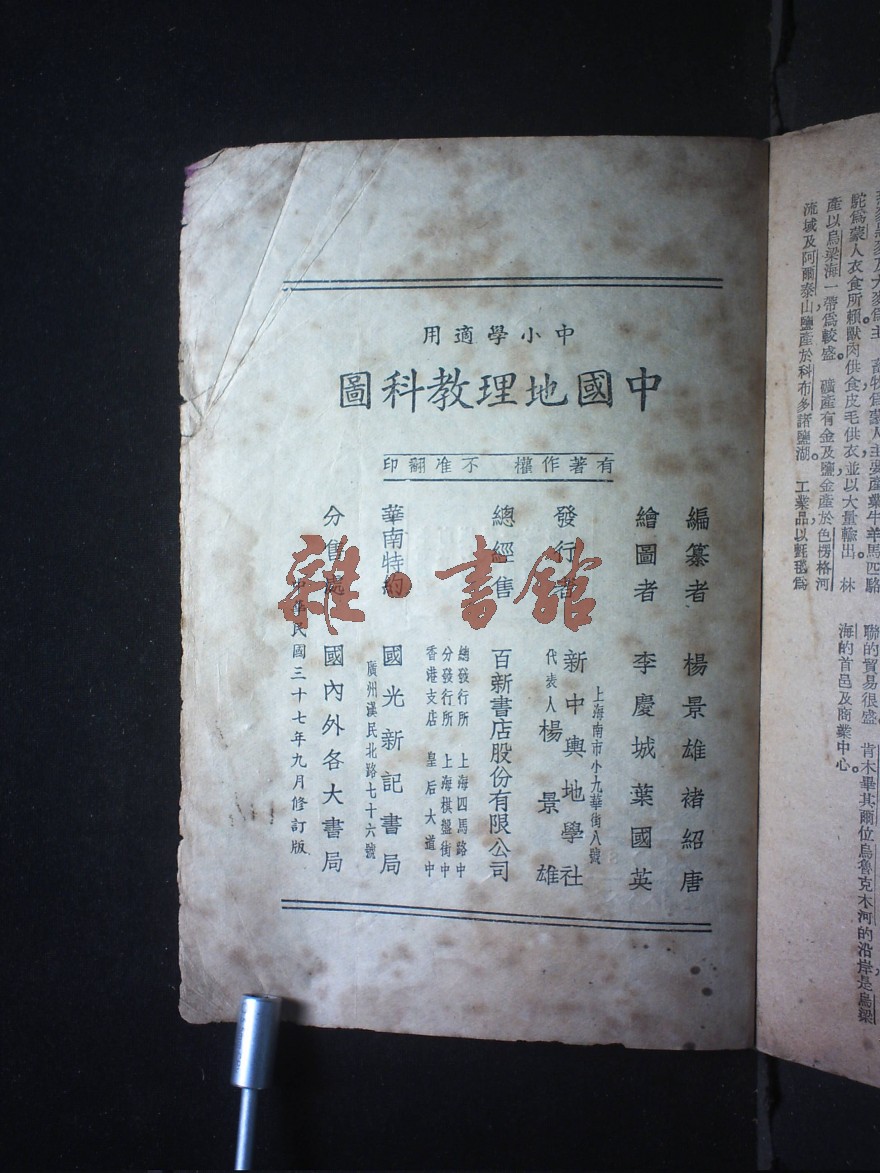 中小學適用
中國地理教科圖
有著作權 不准翻印
編纂者 楊景雄 褚紹唐
繪圖者 李慶城 葉國英
上海南市小九華街八號
發行者 新中輿地學社
代表人 楊景雄
總經售 百新書店股份有限公司
總發行所 上海四馬路中
分發行所 上海棋盤街中
香港支店 皇后大道中
華南特約 國光新記書局
廣州漢民北路七十六號
分售處 國內外各大書局
中華民國三十七年九月修訂版
雜·書館
駝爲蒙人衣食所賴獸肉供食皮毛供衣並以大量輸出 林
產以烏梁海一帶爲較盛 礦產有金及鹽金產於色楞格河
流域及阿爾泰山鹽產於科布多諸鹽湖 工業品以氈毯爲
聯的貿易很盛。 肯木畢其爾位烏魯克木河的沿岸是烏梁
海的首邑及商業中心。